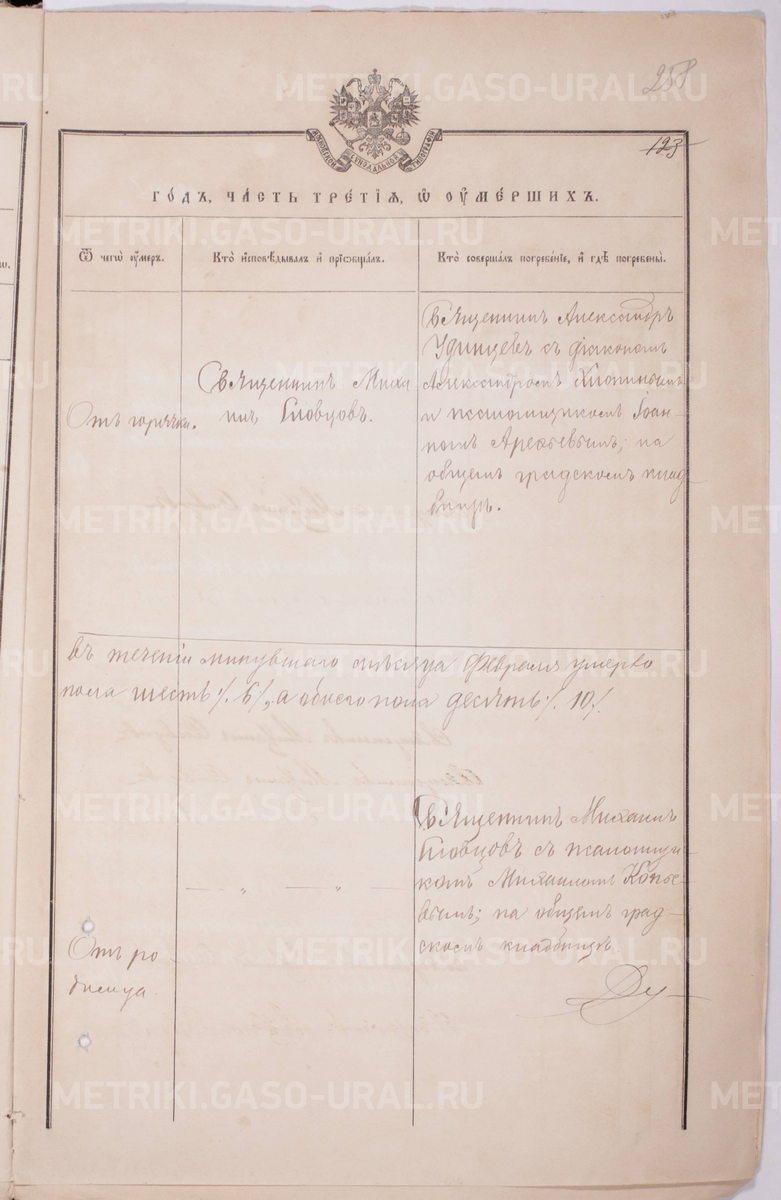 258
123
МОСКОВСКОЙ СѴНОДАЛЬНОЙ ТИПОГРАФІИ
ГОДЪ, ЧАСТЬ ТРЕТІЯ, Ѡ ОУМЕРШИХЪ.
Ѿ чегѡ оумеръ.
Кто исповѣдывалъ и пріобщалъ.
Кто совершалъ погребеніе, и гдѣ погребены.
Отъ горячки.
Священникъ Миха
илъ Словцовъ.
Священникъ Александръ
Удинцевъ съ діакономъ
Александромъ
и псаломщикомъ Іоан-
номъ Арефьевымъ; на
общемъ градскомъ клад-
бищѣ.
въ теченіи минувшаго мѣсяца Февраля умерво
пола шесть /. 6 /., а обоего пола десять /. 10 /.
— „ — „ —
Отъ ро
димца.
Священникъ Михаилъ
Словцовъ съ псаломщи
комъ Михаиломъ Копье-
вымъ; на общемъ град-
скомъ кладбищѣ
METRIKI.GASO-URAL.RU